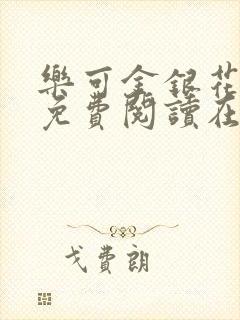 樂可金銀花
免費閱讀在
戈費朗